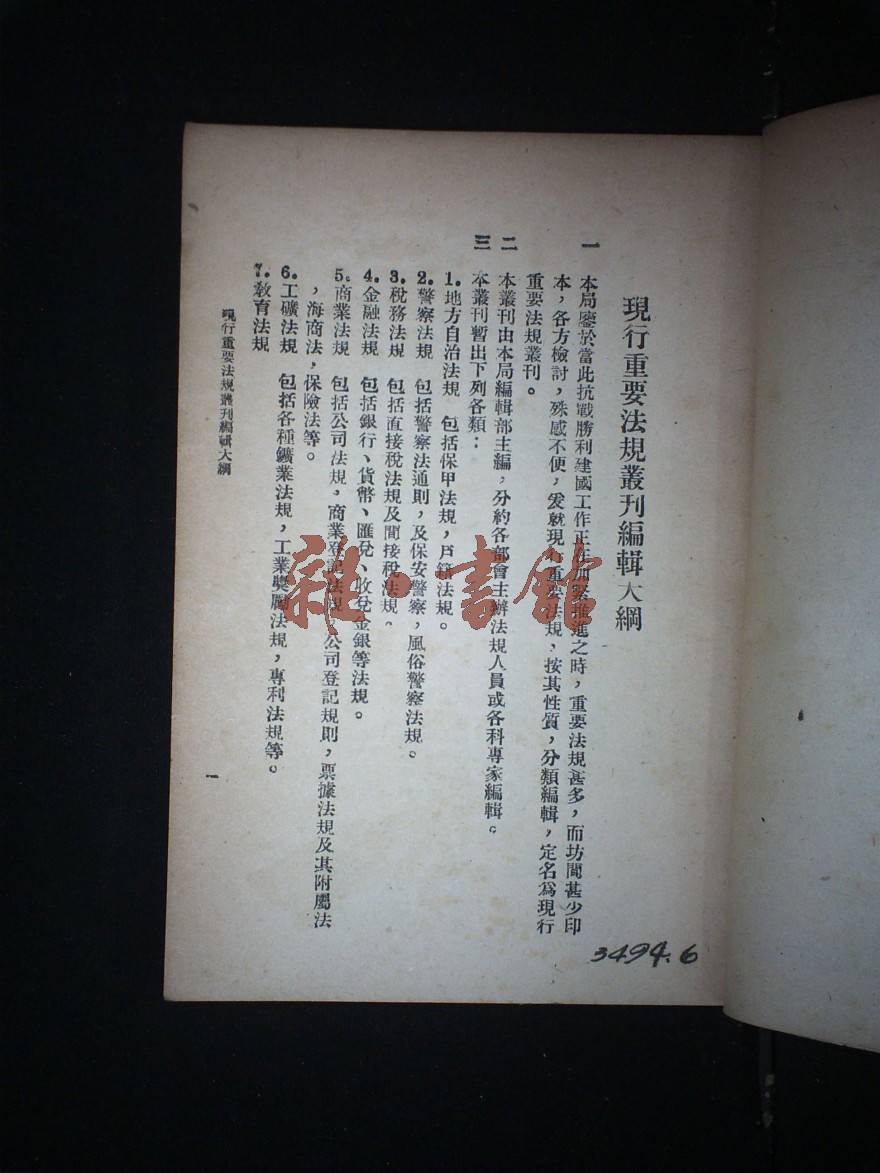 現行重要法規叢刊編輯大綱
一 本局鑒於當此抗戰勝利建國工作正在加緊推進之時，重要法規甚多，而坊間甚少印
本，各方檢討，殊感不便，爰就現行重要法規，按其性質，分類編輯，定名爲現行
重要法規叢刊。
二 本叢刊由本局編輯部主編，分約各部會主辦法規人員或各科專家編輯。
三 本叢刊暫出下列各類：
1. 地方自治法規 包括保甲法規，戶籍法規。
2. 警察法規 包括警察法通則，及保安警察，風俗警察法規。
3. 稅務法規 包括直接稅法規及間接稅法規。
4. 金融法規 包括銀行、貨幣、匯兌、收兌金銀等法規。
5. 商業法規 包括公司法規，商業登記法規，公司登記規則，票據法規及其附屬法
，海商法，保險法等。
6. 工礦法規 包括各種鑛業法規，工業獎勵法規，專利法規等。
7. 敎育法規
現行重要法規叢刊編輯大綱
一
3494.6
雜·書館